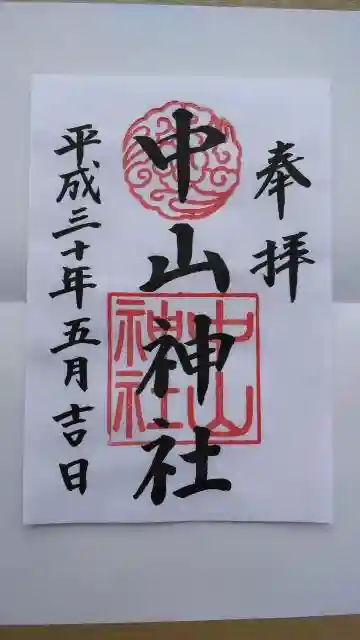 奉拝
中山神社
中山神社
平成三十年五月吉日